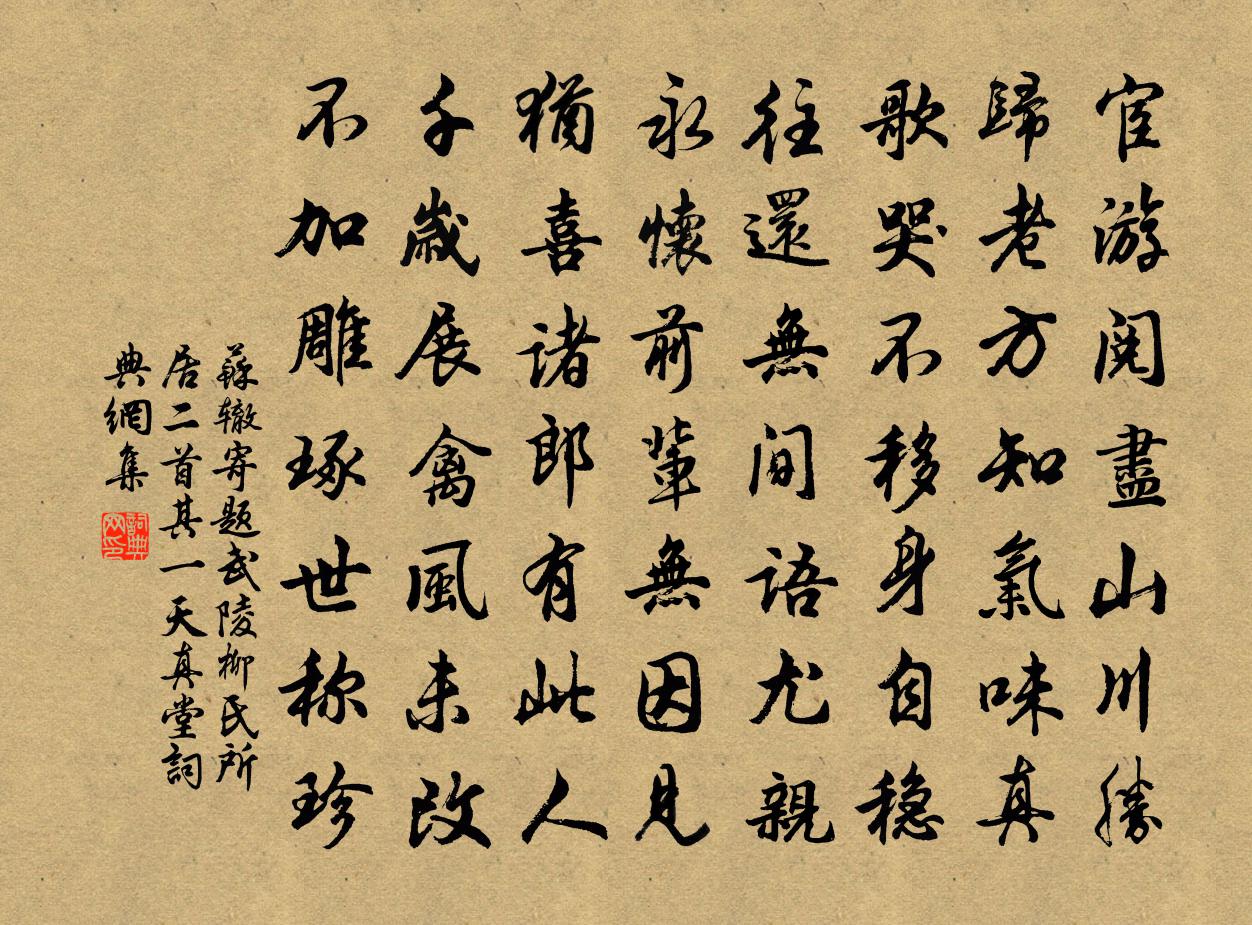 宦游閱盡山川勝
歸老方知氣味真
歌哭不移身自穩
往還無間語尤親
永懷前輩無因見
猶喜諸郎有此人
千歲展禽風未改
不加雕琢世称珍
蘇辙寄題武陵柳氏所
居二首其一天真堂詞
典網集
詞典
网印